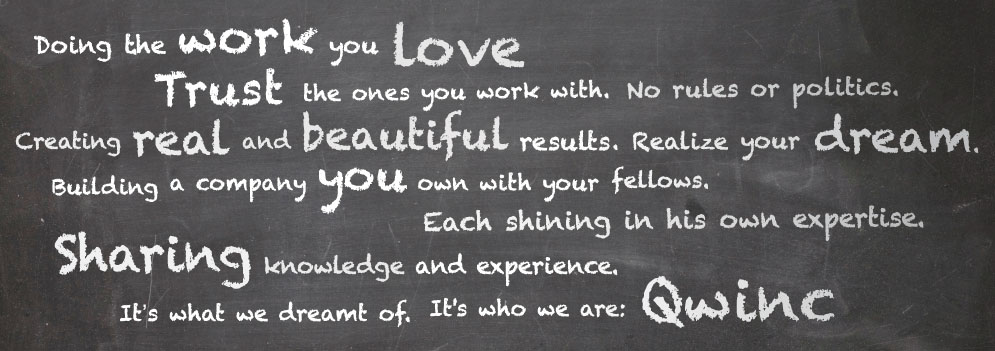 Doing the work you love
Trust the ones you work with. No rules or politics.
Creating real and beautiful results. Realize your dream.
Building a company you own with your fellows.
Each shining in his own expertise.
Sharing knowledge and experience.
It's what we dreamt of. It's who we are: Qwinc